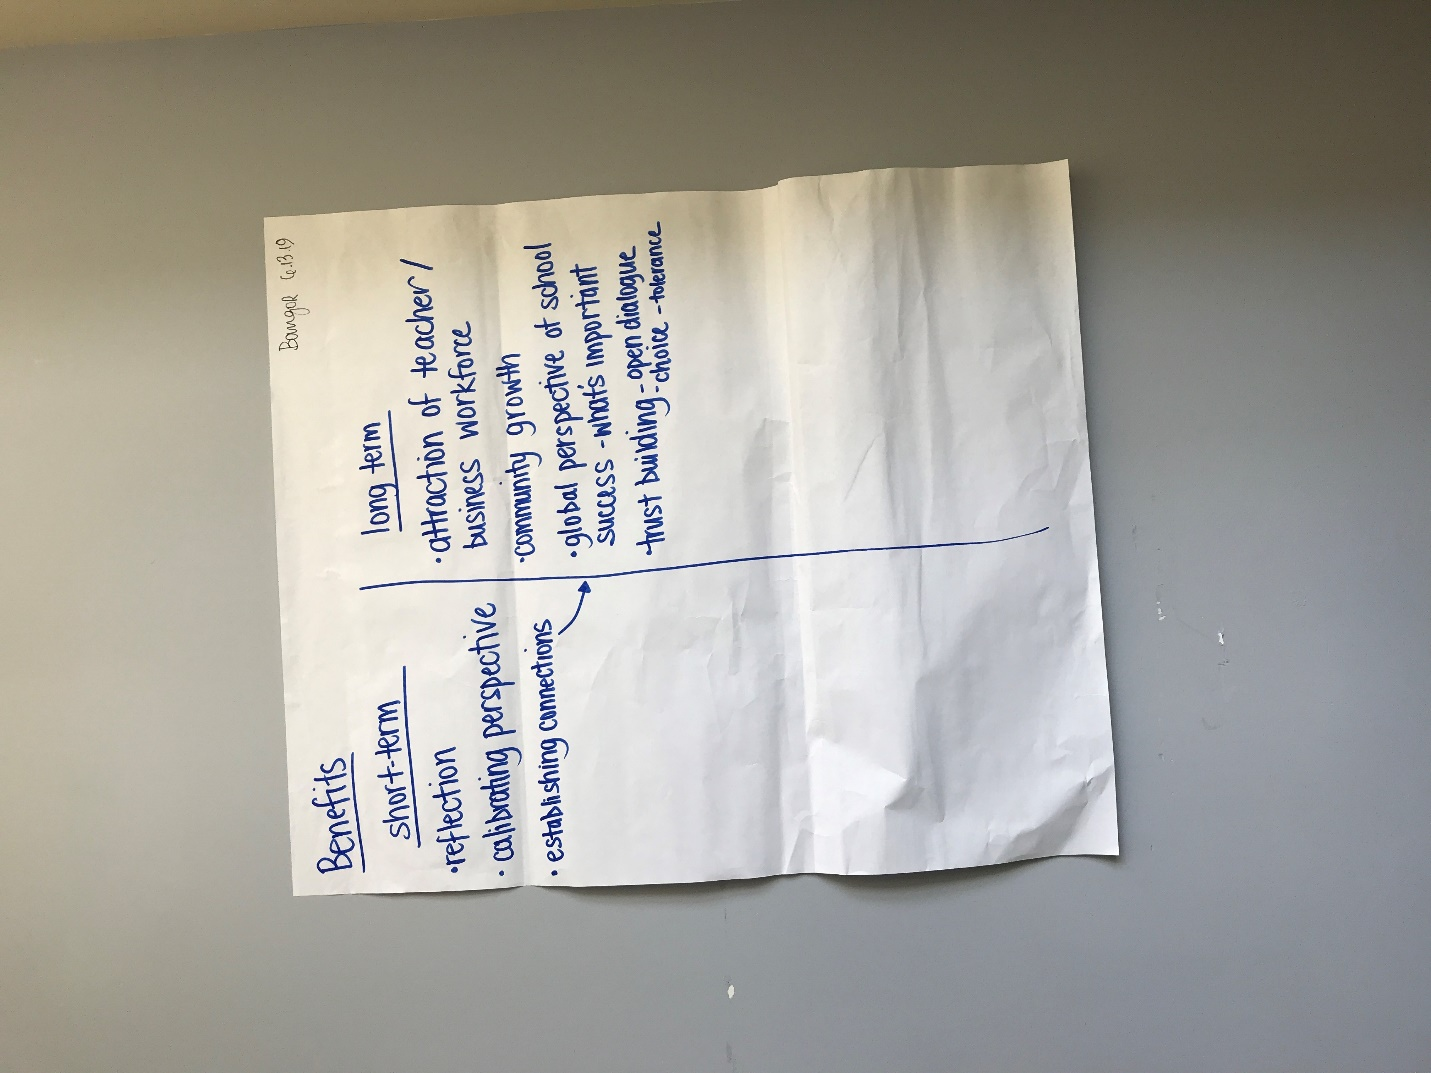 Bangor 6.13.19
Benefits
short-term
•reflection
•calibrating perspective
•establishing connections
long term
•attraction of teacher/
business workforce
•community growth
•global perspective of school
success -what's important
•trust building -open dialogue
-choice -tolerance